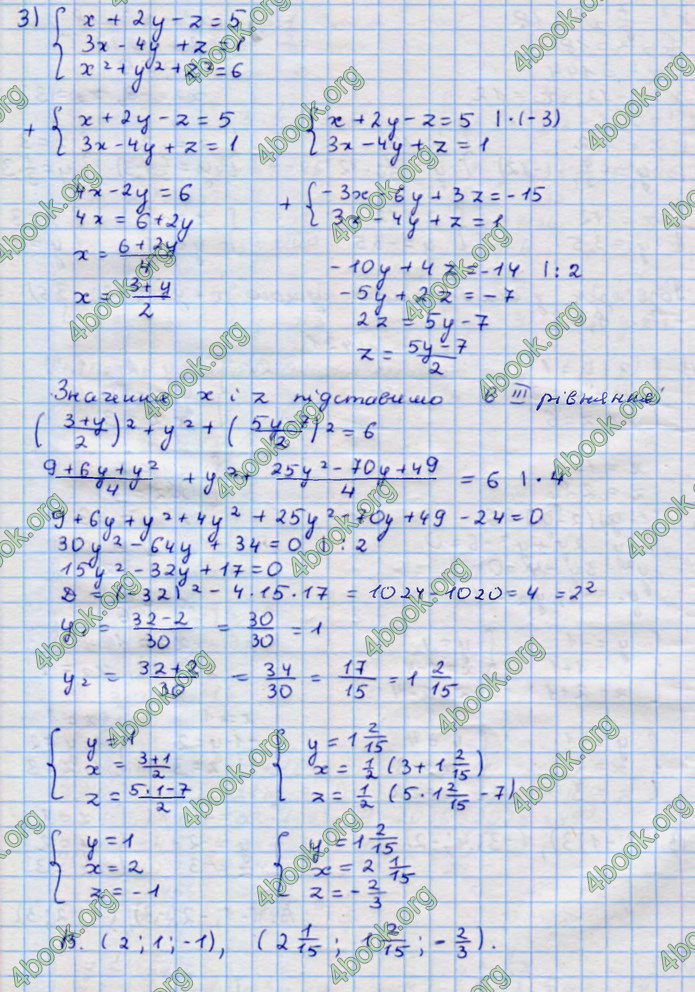 3) { x + 2y - z = 5
3x - 4y + z = 1
x² + y² + z² = 6
+ { x + 2y - z = 5
3x - 4y + z = 1
4x - 2y = 6
4x = 6 + 2y
x = (6 + 2y)/4
x = (3 + y)/2
{ x + 2y - z = 5 | · (-3)
3x - 4y + z = 1
+ { -3x - 6y + 3z = -15
3x - 4y + z = 1
-10y + 4z = -14 | : 2
-5y + 2z = -7
2z = 5y - 7
z = (5y - 7)/2
Значення x і z підставимо в III рівняння
((3+y)/2)² + y² + ((5y-7)/2)² = 6
(9 + 6y + y²)/4 + y² + (25y² - 70y + 49)/4 = 6 | · 4
9 + 6y + y² + 4y² + 25y² - 70y + 49 - 24 = 0
30y² - 64y + 34 = 0 | : 2
15y² - 32y + 17 = 0
D = (-32)² - 4·15·17 = 1024 - 1020 = 4 = 2²
y₁ = (32-2)/30 = 30/30 = 1
y₂ = (32+2)/30 = 34/30 = 17/15 = 1 2/15
{ y = 1
x = (3+1)/2
z = (5·1-7)/2
{ y = 1 2/15
x = 1/2 (3 + 1 2/15)
z = 1/2 (5·1 2/15 - 7)
{ y = 1
x = 2
z = -1
{ y = 1 2/15
x = 2 1/15
z = -2/3
В. (2; 1; -1), (2 1/15; 1 2/15; -2/3).
4book.org